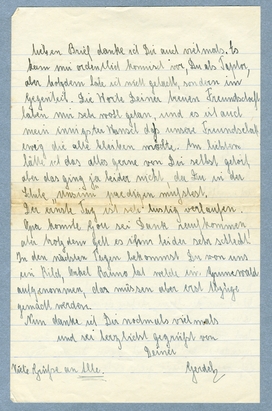 lieben Brief danke ich Dir auch vielmals. Es
kam mir ordentlich komisch vor, Du als Pastor,
aber trotzdem habe ich nicht gelacht, sondern im
Gegenteil. Die Worte Deiner treuen Freundschaft
haben mir sehr wohl getan, und es ist auch
mein innigster Wunsch daß unsere Freundschaft
ewig die alte bleiben möchte. Am liebsten
hätte ich das alles gerne von Dir selbst gehört,
aber das ging ja leider nicht, da Du in der
Schule predigen mußtest.
Der ernste Tag ist sehr lustig verlaufen.
Opa konnte Gott sei Dank kommen,
aber trotzdem geht es ihm leider sehr schlecht.
In den nächsten Tagen bekommst Du von uns
ein Bild, Onkel hat welche im Grunewald
aufgenommen, das müssen aber erst Abzüge
gemacht werden.
Nun danke ich Dir nochmals vielmals
und sei herzlichst gegrüßt von
Deiner
Viele Grüße an Alle.